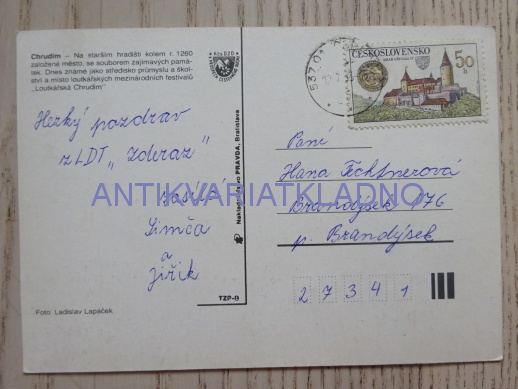 Chrudim – Na starším hradišti kolem r. 1260
založené město, se souborem zajímavých pamá-
tek. Dnes známé jako středisko průmyslu a škol-
ství a místo loutkářských mezinárodních festivalů
„Loutkářská Chrudim"
Kčs 0,20
Hezký pozdrav
z LDT „Zderaz"
Simča
a
Jiřík
TZP-B
Foto Ladislav Lapáček
Nakladatelstvo PRAVDA, Bratislava
ČESKOSLOVENSKO
50
h
537 01
Paní
Hana Fechtnerová
Brandýsek 176
p. Brandýsek
2 7 3 4 1
ANTIKVARIATKLADNO